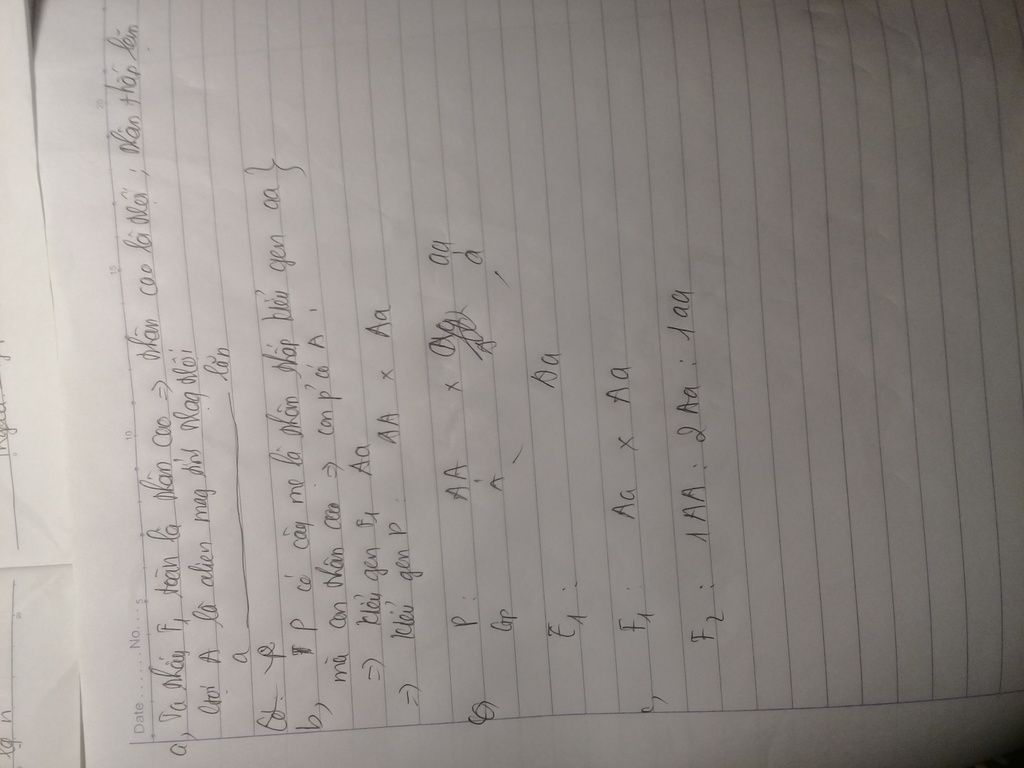 Date ..... No ..... 5 10 15 20
a, Ta thấy F1 toàn là thân cao => thân cao là trội ; thân thấp lặn
Gọi A là alien mag tính trạng trội
a lặn
b, P có cây mẹ là thân thấp kiểu gen aa }
mà con thân cao => con p' có A
=> kiểu gen F1 Aa
=> kiểu gen P : AA × Aa
P : AA × aa
Gp A a
F1 : Aa
c, F1 : Aa × Aa
F2 : 1AA : 2Aa : 1aa